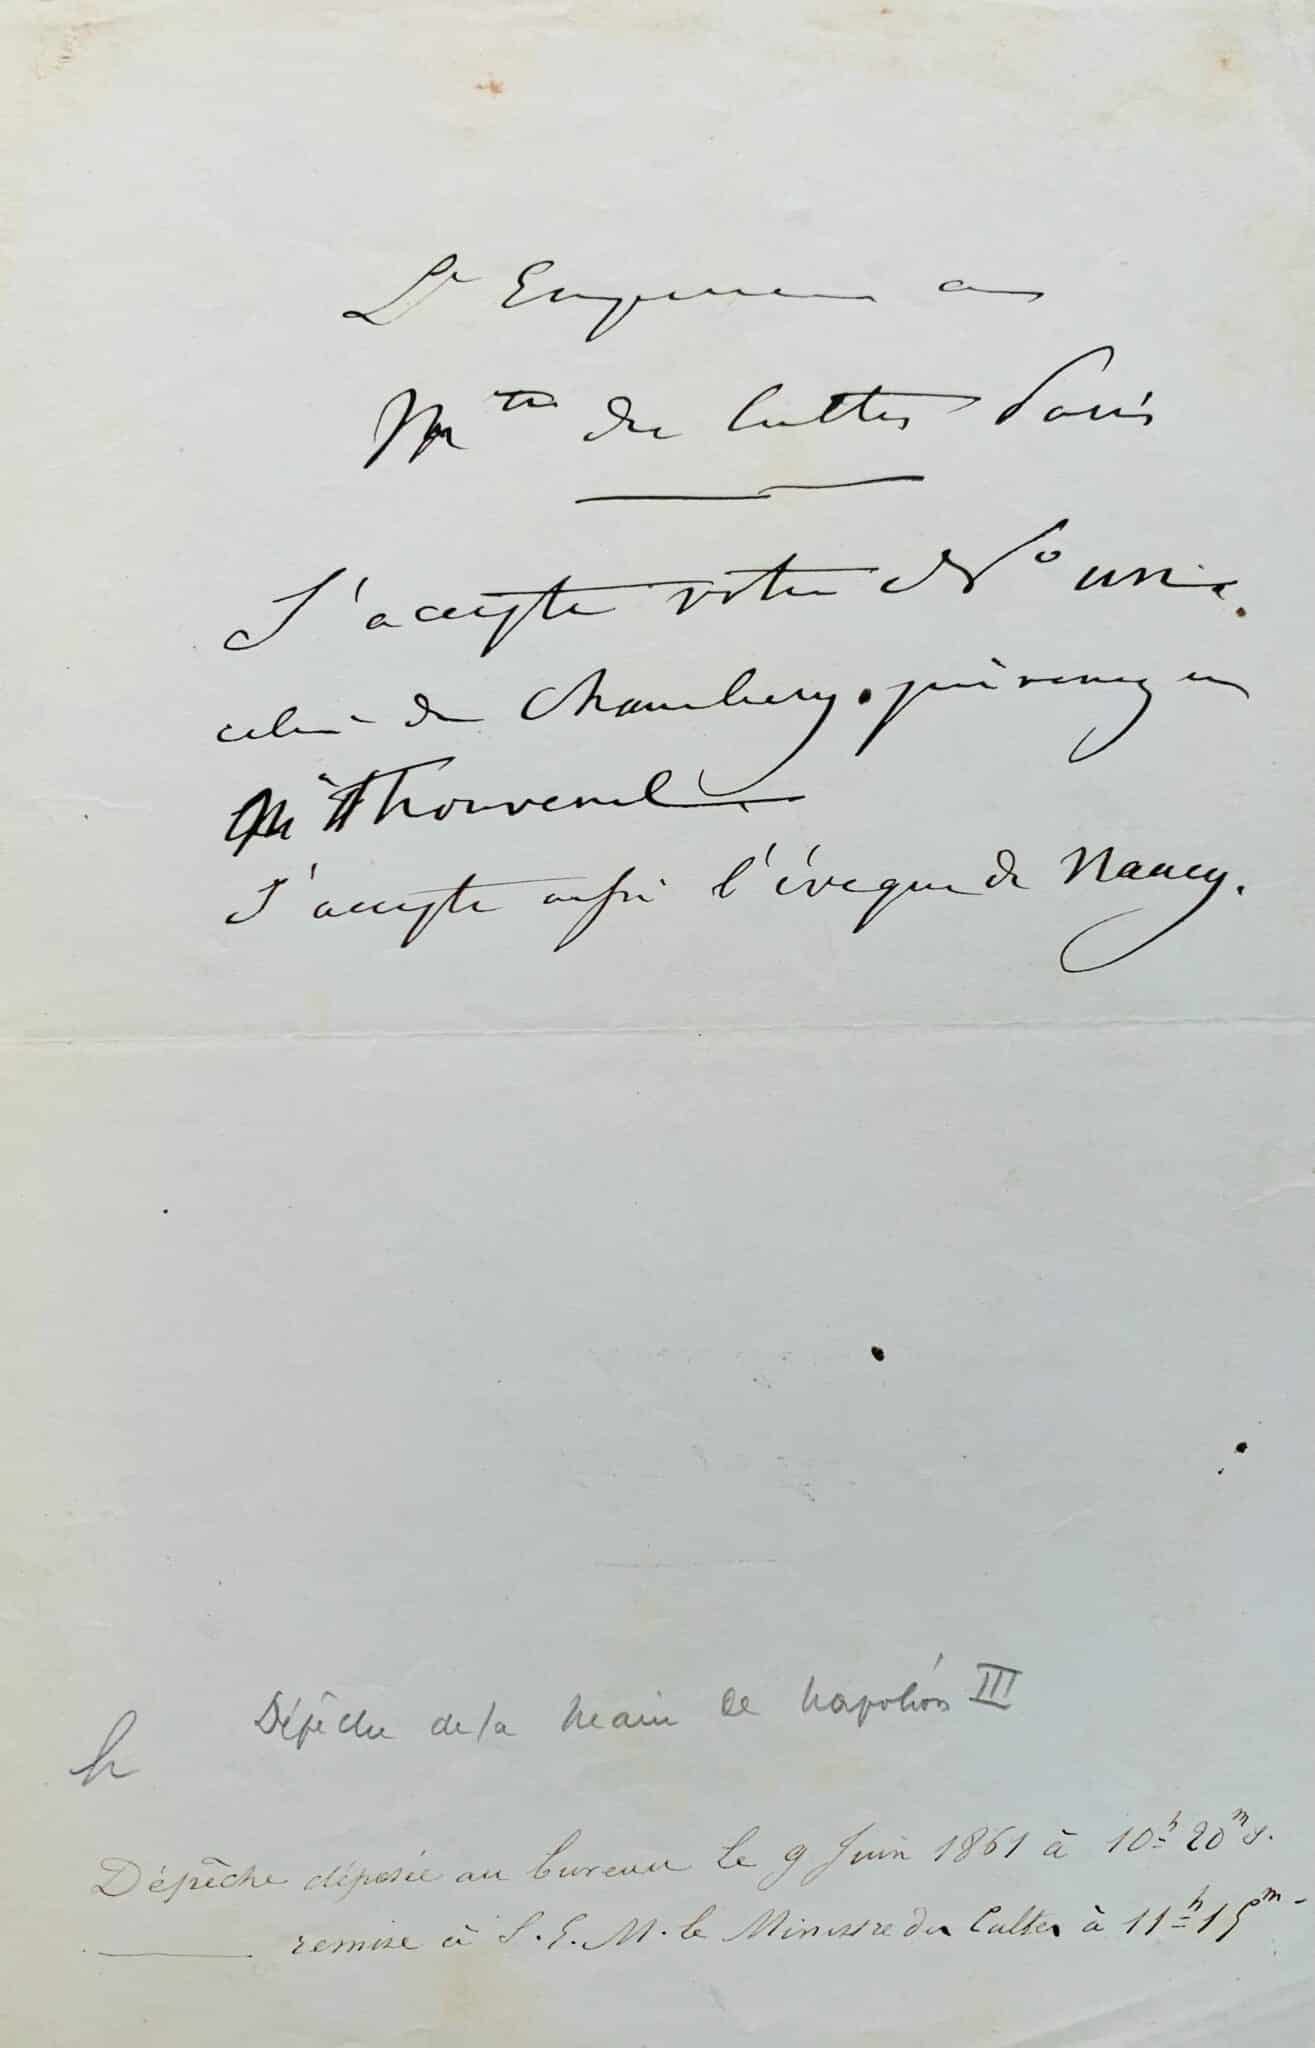 L'Empereur au
M<sup>tre</sup> des Cultes Paris
J'accepte votre N° un.
celui de Chambery. prévenez en
M<sup>r</sup> Thouvenel.
J'accepte aussi l'évêque de Nancy.
Dépêche de la main de Napoléon III
Dépêche déposée au bureau le 9 Juin 1861 à 10<sup>h</sup> 20<sup>m</sup> s.
remise à S. E. M. le Ministre des Cultes à 11<sup>h</sup> 15<sup>m</sup>